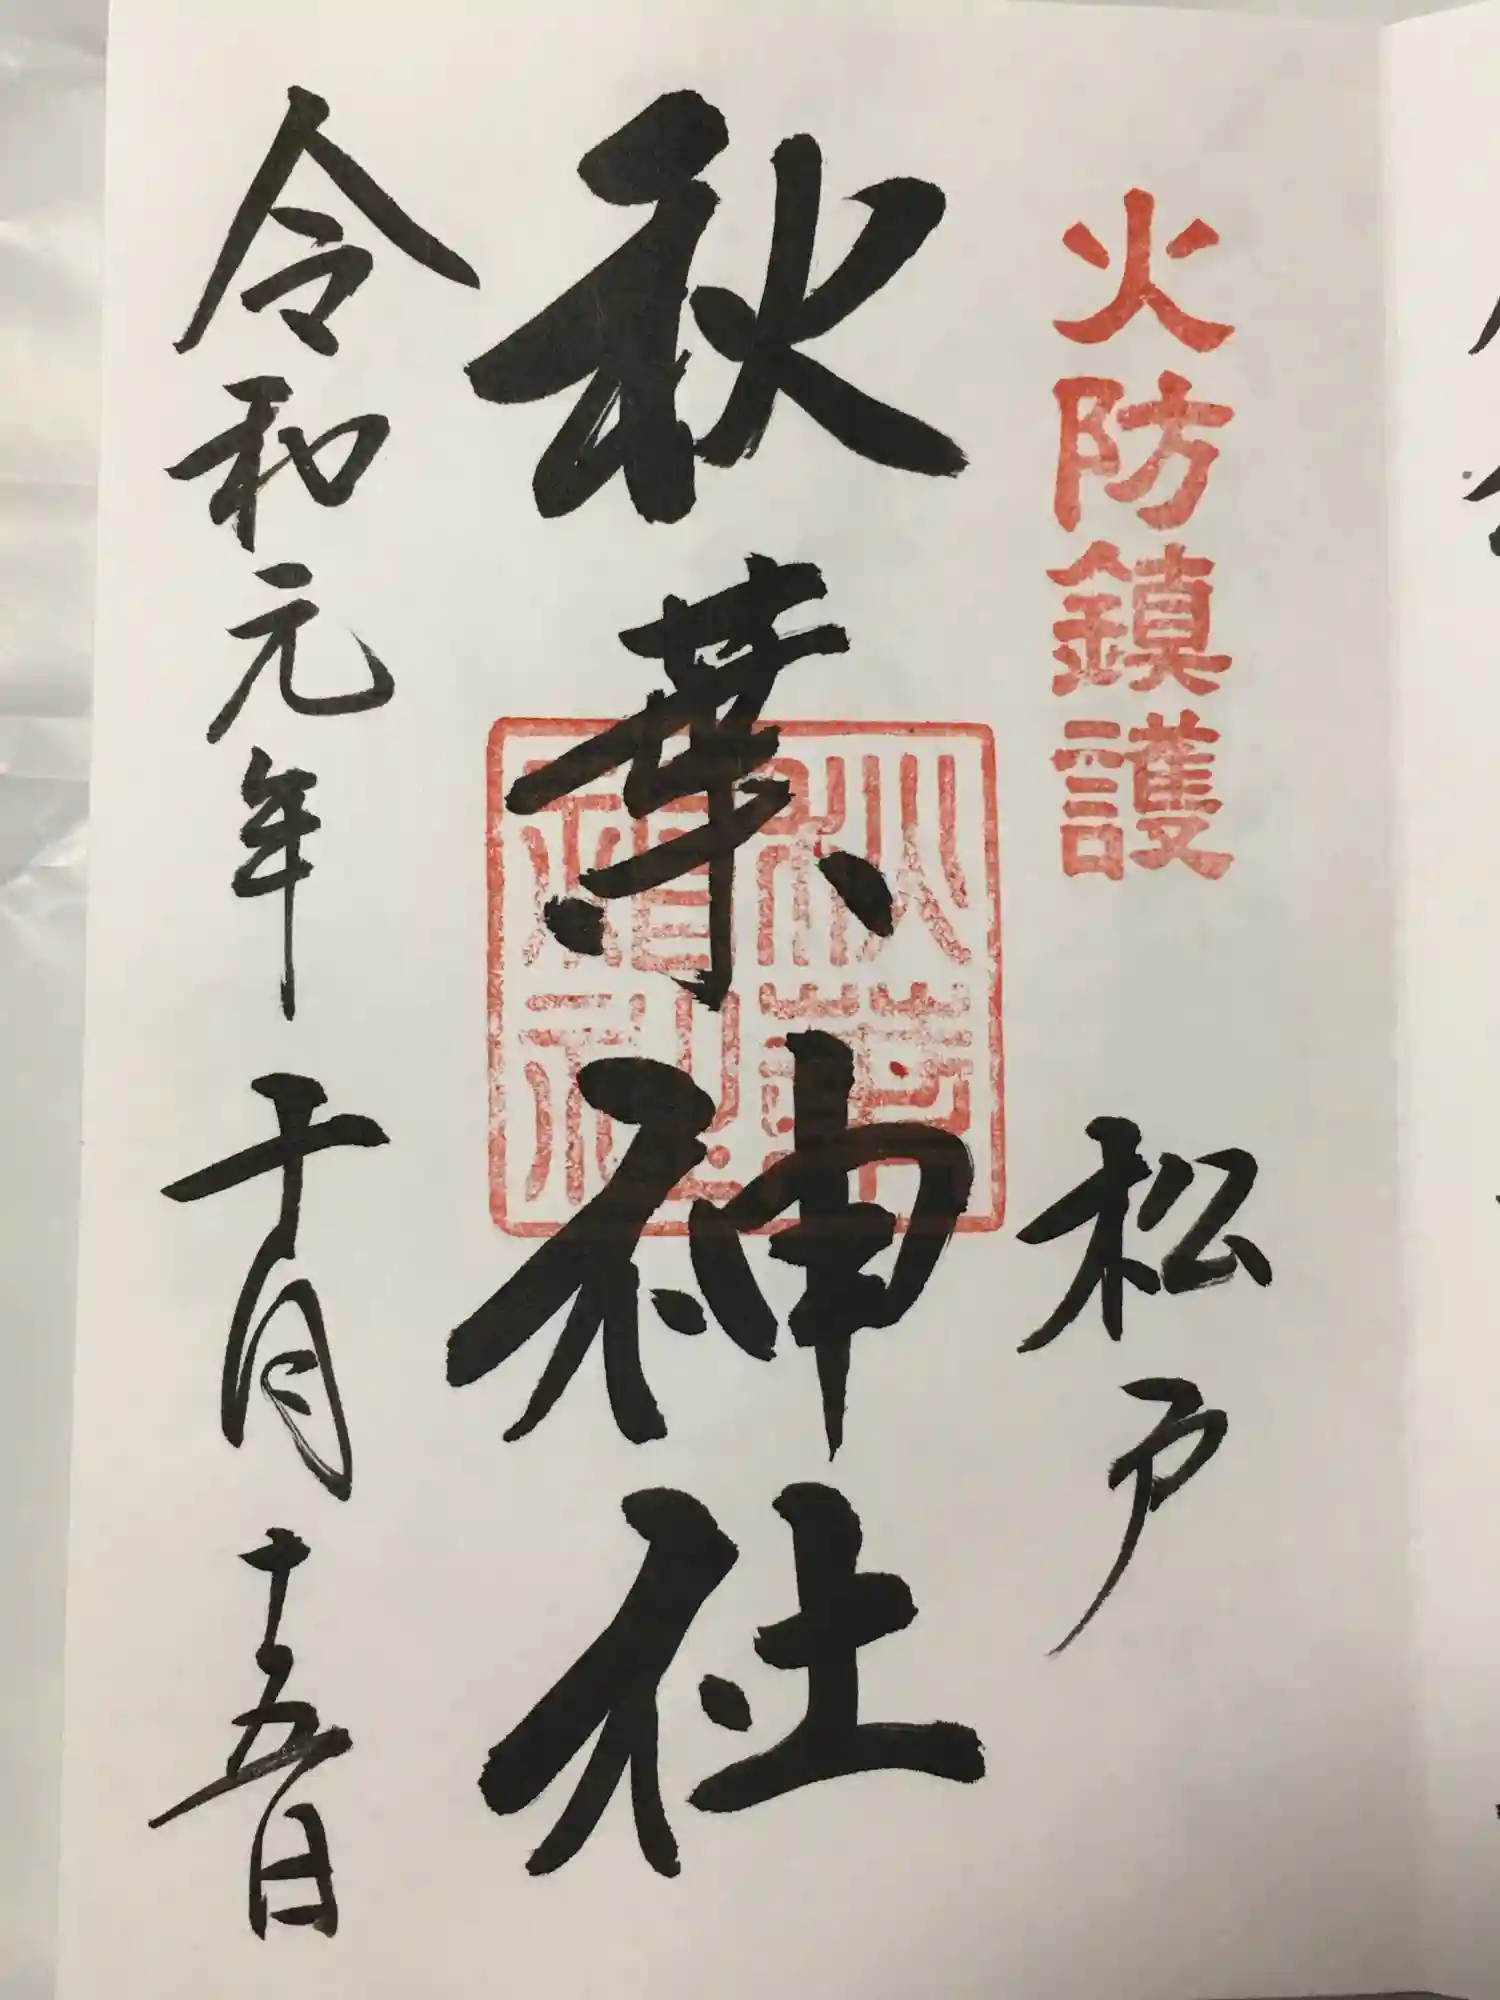 火防鎮護
松戸
秋葉神社
秋葉
神社
令和元年 十月十五日